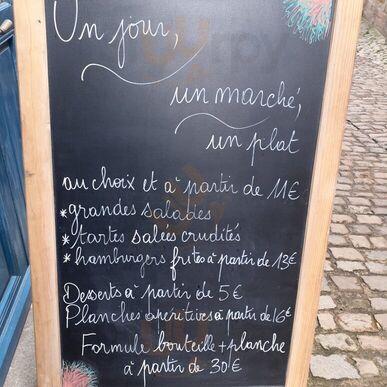 Un jour,
un marché,
un plat
au choix et à partir de 11€
*grandes salades
*tartes salées crudités
*hamburgers frites à partir de 13€
Desserts à partir de 5€
Planches apéritives à partir de 16€
Formule bouteille + planche
à partir de 30€